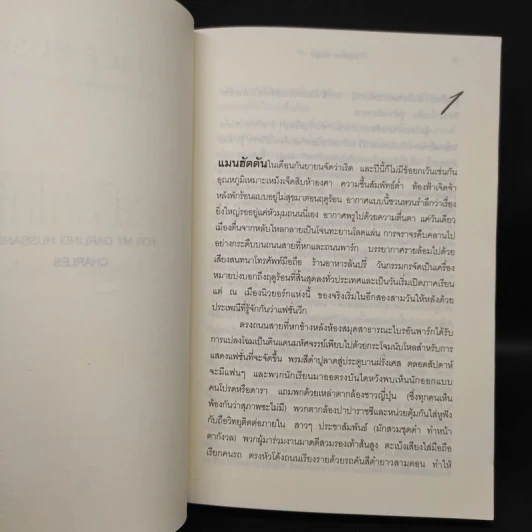 1
แมนฮัตตันในเดือนกันยายนจัดว่าเริ่ด และปีนี้ก็ไม่มีข้อยกเว้นเช่นกัน
อุณหภูมิเหมาะเหม็งเจ็ดสิบห้าองศา ความชื้นสัมพัทธ์ต่ำ ท้องฟ้าเจิดจ้า
หลังพักร้อนแบบอยู่ไม่สุขมาตอนฤดูร้อน อากาศแบบนี้ชวนหวนรำลึกว่าเรื่อง
ยิ่งใหญ่รออยู่แค่หัวมุมถนนนี่เอง อากาศพรูไปด้วยความตื่นตา แค่วันเดียว
เมืองตื่นจากหลับใหลกลายเป็นโจนทะยานโลดแล่น การจราจรคืบคลานไป
อย่างกระดึบบนถนนสายที่หกและถนนพาร์ก บรรยากาศรายล้อมไปด้วย
เสียงสนทนาโทรศัพท์มือถือ ร้านอาหารล้นปรี่ วันกรรมกรจัดเป็นเครื่อง
หมายบ่งบอกถึงฤดูร้อนที่สิ้นสุดลงทั่วประเทศและเป็นวันเริ่มเปิดภาคเรียน
แต่ ณ เมืองนิวยอร์กแห่งนี้ ของจริงเริ่มในอีกสองสามวันให้หลังด้วย
ประเพณีที่รู้จักกันว่าแฟชั่นวีก
ตรงถนนสายที่หกข้างหลังห้องสมุดสาธารณะไบรอันพาร์กได้รับ
การแปลงโฉมเป็นดินแดนมหัศจรรย์เพียบไปด้วยกระโจมนับโหลสำหรับการ
แสดงแฟชั่นที่จะจัดขึ้น พรมสีดำปูลาดสู่ประตูบานฝรั่งเศส ตลอดสัปดาห์
จะมีแฟนๆ และพวกนักเรียนมาออตรงบันไดหวังพบเห็นนักออกแบบ
คนโปรดหรือดารา แถมพกด้วยเหล่าตากล้องชาวญี่ปุ่น (ซึ่งทุกคนเห็น
พ้องกันว่าสุภาพชะไม่มี) พวกตากล้องปาปาราซซีและหน่วยคุ้มกันใส่หูฟัง
กับถือวิทยุติดต่อภายใน สาวๆ ประชาสัมพันธ์ (มักสวมชุดดำ ทำหน้า
ตากังวล) พวกผู้มาร่วมงานมาดดีสวมรองเท้าส้นสูง ตะเบ็งเสียงใส่มือถือ
เรียกคนรถ ตรงหัวโค้งถนนเรียงรายด้วยรถคันสีดำยาวสามตอน ทำให้